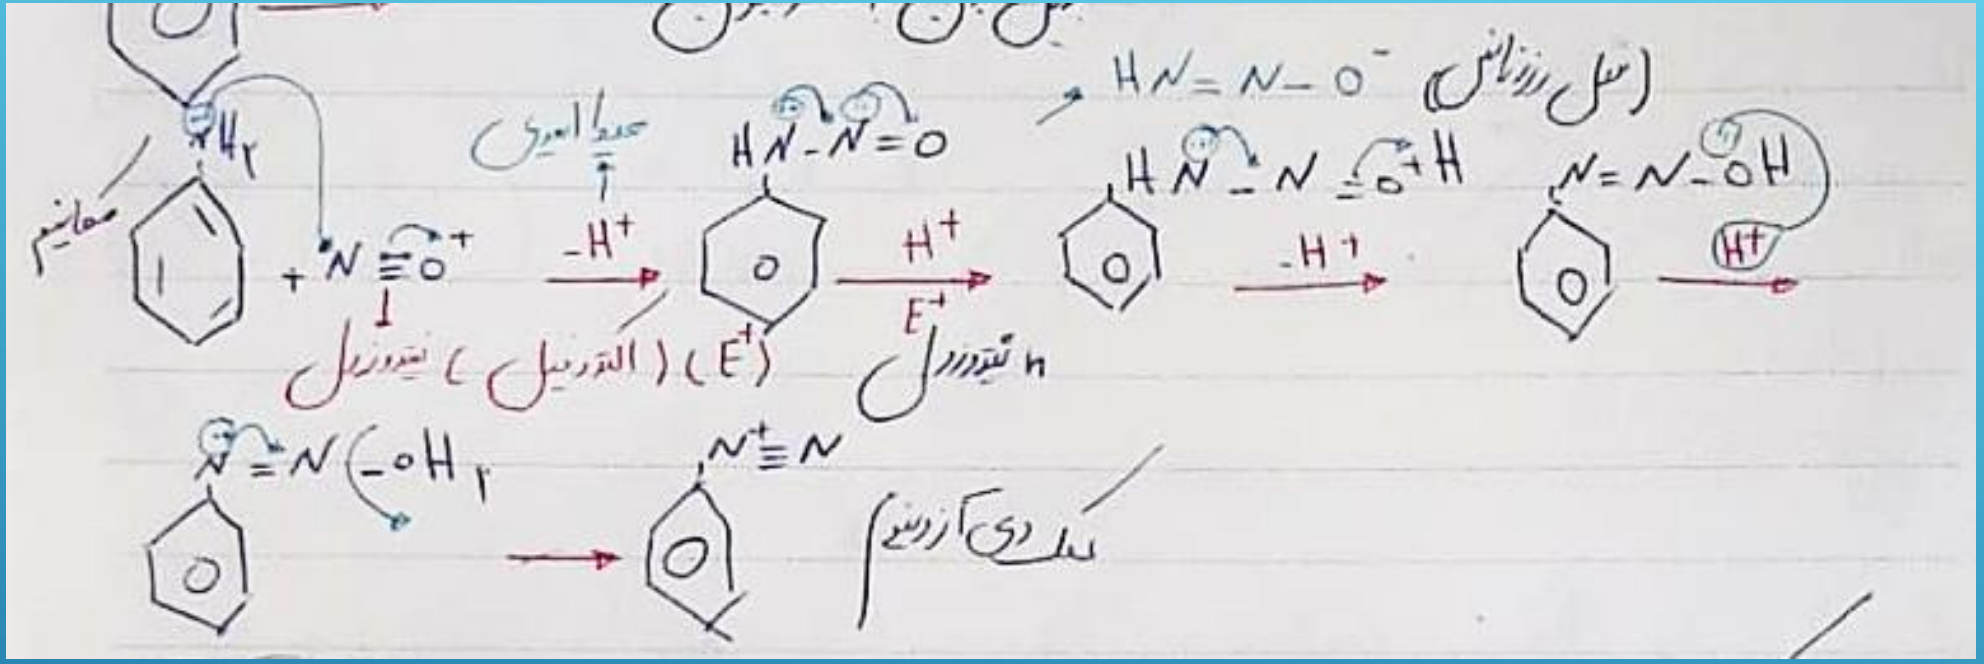 HN = N - O⁻ (مثل رزونانس)
NH۲ محیط اسیدی HN - N = O HN - N = O⁺H N = N - OH
+ N ≡ O⁺ -H⁺ H⁺ -H⁺ H⁺
نیتروزیل (الکتروفیل) (E⁺) E⁺ n نیتروزو
N = N - OH۲ N⁺ ≡ N
نمک دی آزونیوم